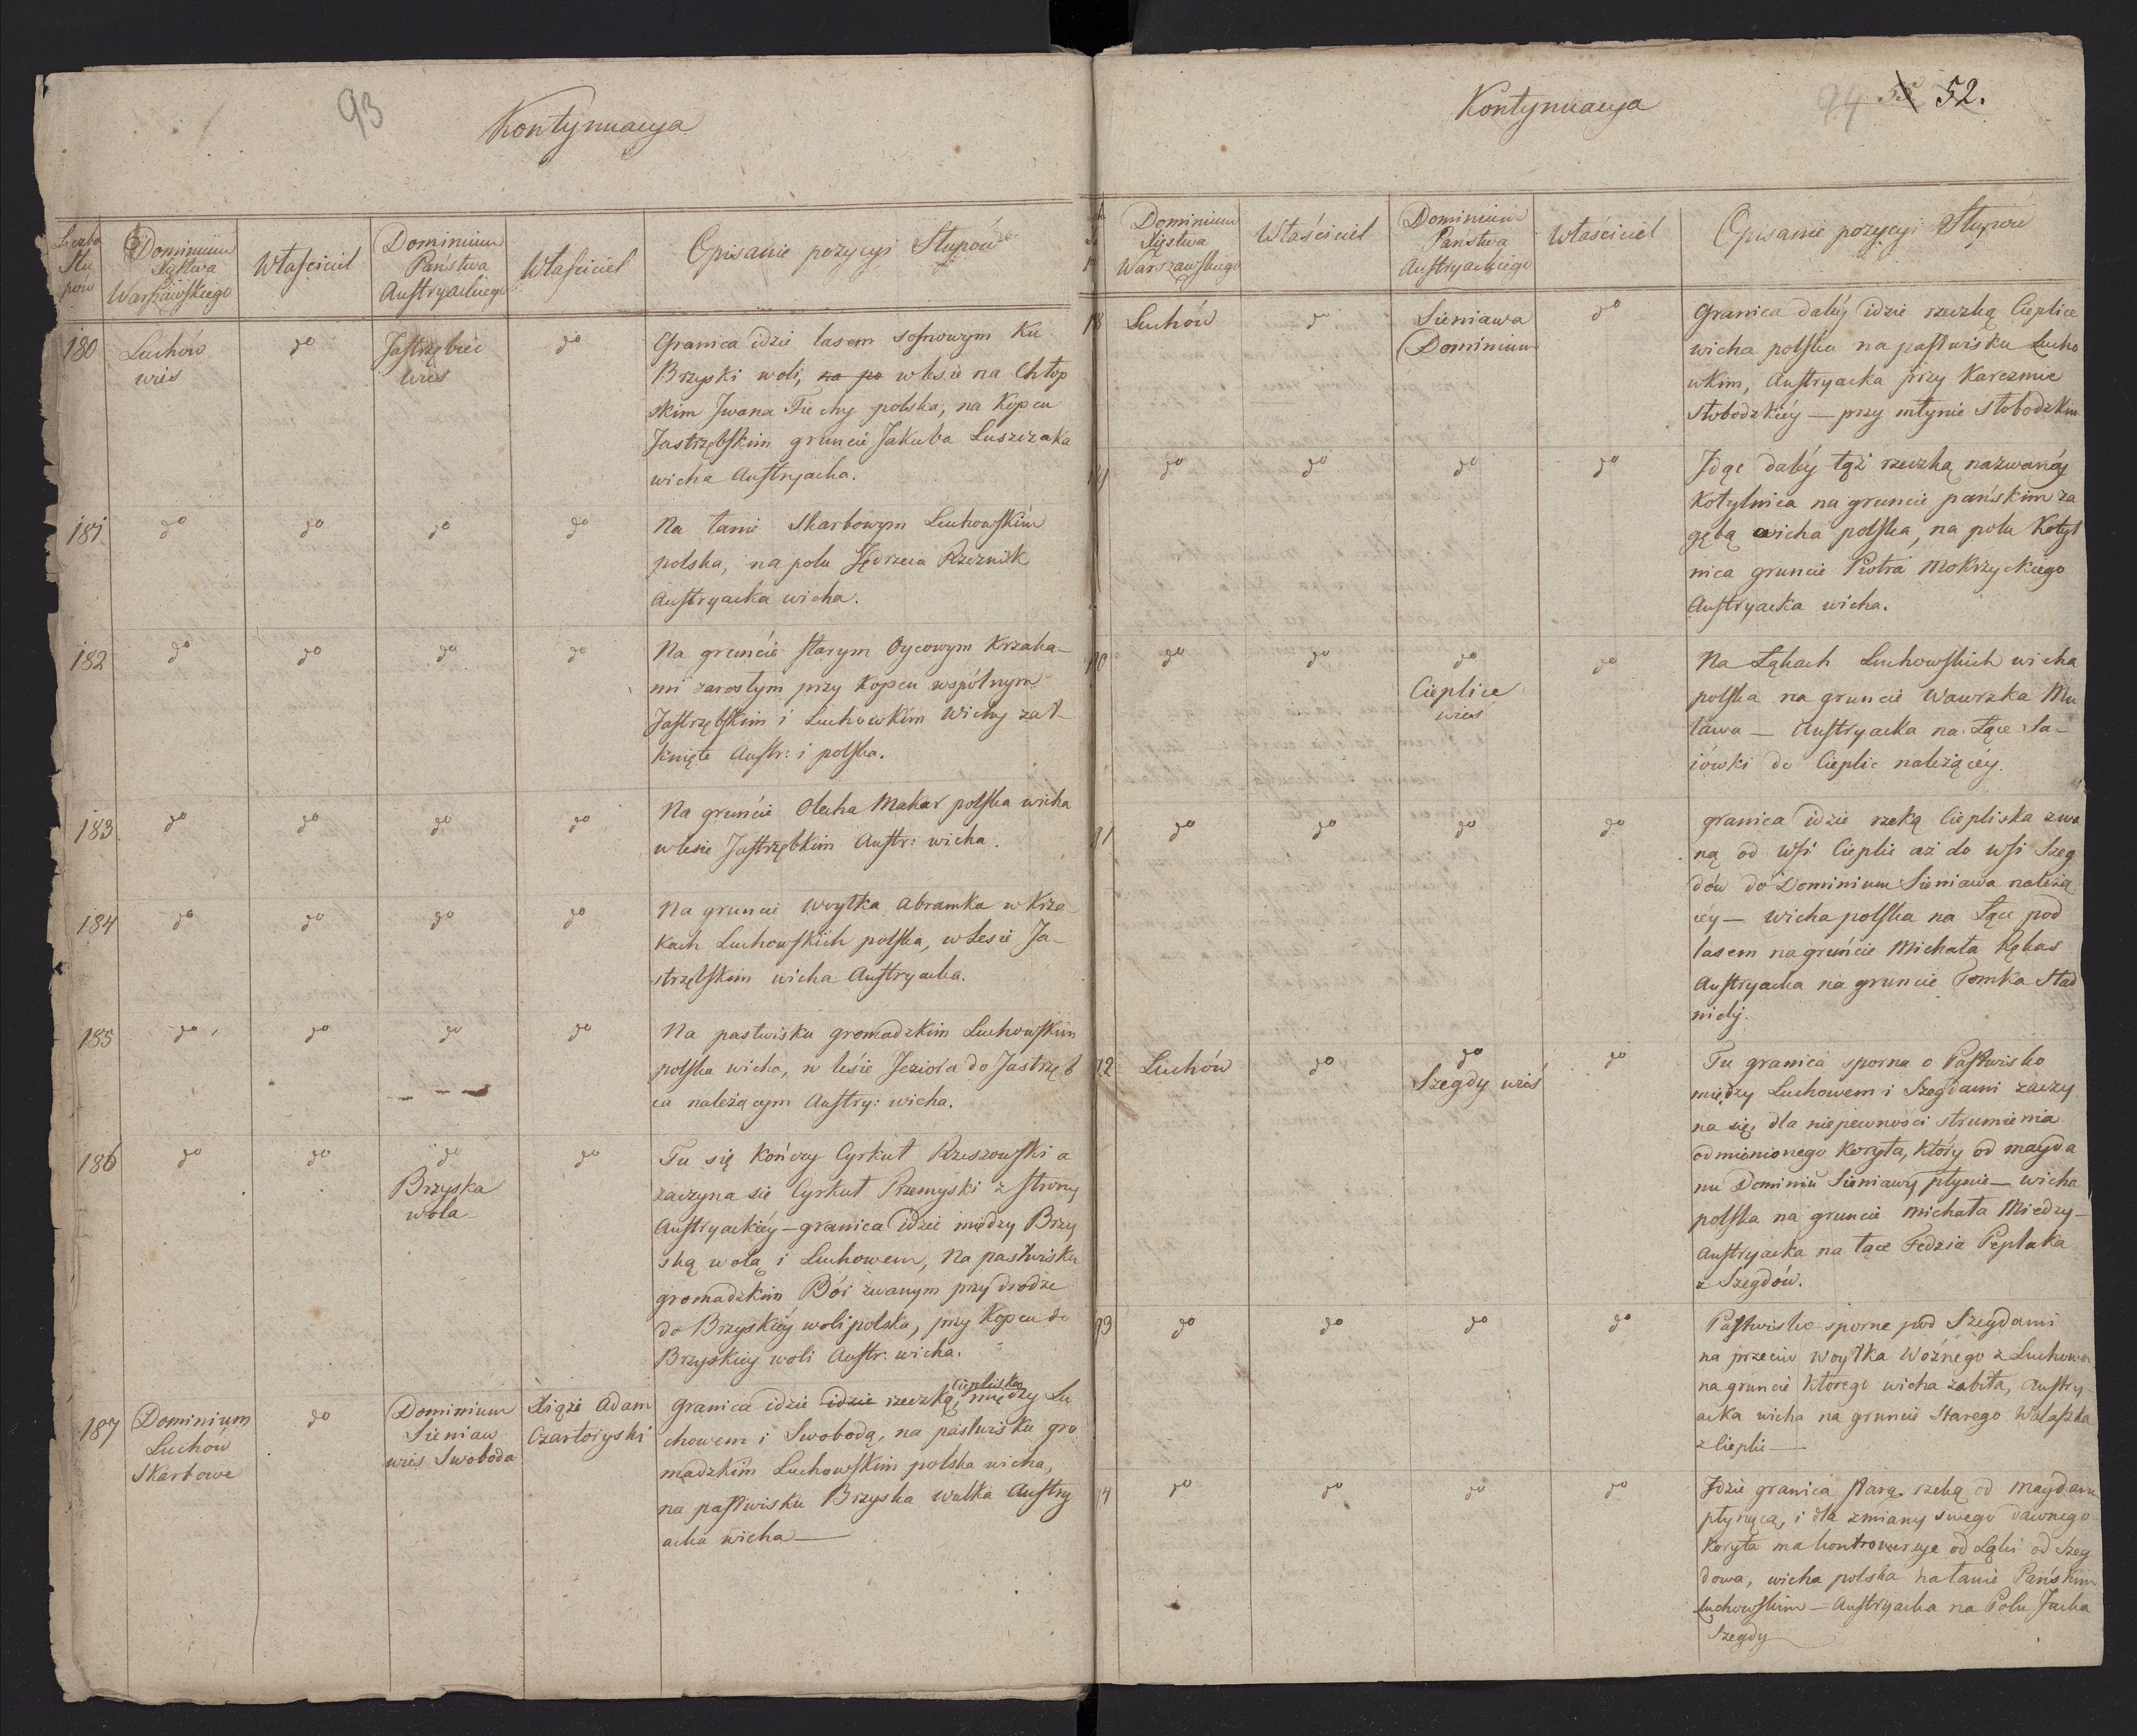 93
Kontynuacya
Liczba Słupów
Dominium Xęstwa Warszawskiego
Właściciel
Dominium Państwa Austryackiego
Właściciel
Opisanie pozycyi Słupów
180
Luchów wieś
do
Jastrzębiec wieś
do
Granica idzie lasem sosnowym ku
Brzyski woli, na po w lesie na Chłop
skim Jwana Tiechy polska, na Kopcu
Jastrzębskim gruncie Jakuba Luszczaka
wicha Austryacka.
181
do
do
do
do
Na łanie Skarbowym Luchowskim
polska, na polu Jędrzeia Rzeznik
Austryacka wicha.
182
do
do
do
do
Na gruncie starym Oycowym Krzaka-
mi zarosłym przy Kopcu wspólnym
Jastrzębskim i Luchowkim Wichy zat-
knięte Austr: i polska.
183
do
do
do
do
Na gruncie Olecha Makar polska wicha
w lesie Jastrzębkim Austr: wicha.
184
do
do
do
do
Na gruncie Woytka Abramka w Krza-
kach Luchowskich polska, w Lesie Ja-
strzębskim wicha Austryacka.
185
do
do
do
do
Na pastwisku gromadzkim Luchowskim
polska wicha, w lesie Jeziora do Jastrzęb
ca należącym Austry: wicha.
186
do
do
do
Brzyska wola
do
Tu się kończy Cyrkuł Rzeszowski a
zaczyna sie Cyrkuł Przemyski z strony
Austryackiéy – granica idzie między Brzy
ską wolą i Luchowem, Na pastwisku
gromadzkim Bór zwanym przy drodze
do Brzyskiéy woli polska, przy Kopcu do
Brzyskiey woli Austr. wicha.
187
Dominium Luchów Skarbowe
do
Dominium Sieniaw wieś Swoboda
Xiąże Adam Czartoryski
Granica idzie idzie rzeczką Ciepliską między Lu
chowem i Swobodą, na pastwisku gro
madzkim Luchowskim polska wicha,
na pastwisku Brzyska Wulka Austry
acka wicha —
Kontynuacya
94 53 52.
Dominium Xięstwa Warszawskiego
Właściciel
Dominium Państwa Austryackiego
Właściciel
Opisanie pozycyi Słupow
18
Luchów
do
Sieniawa Dominium
do
Granica daléy idzie rzeczką Cieplice
wicha polska na pastwisku Lucho
wkim, Austryacka przy Karczmie
Słobodzkiéy — przy młynie Słobodzkim
do
do
do
do
Jdąc daléy tąż rzeczką nazwanéy
Kotylnica na gruncie pańskim za
gębą wicha polska, na polu Kotyl
nica gruncie Piotra Mokrzyckiego
Austryacka wicha.
do
do
do
Cieplice wieś
do
Na Łąkach Luchowskich wicha
polska na gruncie Wawrzka Mu
ława — Austryacka na Łące Sa-
iówki do Cieplic należącéy.
91
do
do
do
do
granica idzie rzeką Ciepliska zwa
ną od wsi Cieplic aż do wsi Szeg
dów do Dominium Sieniawa należą
céy — wicha polska na Łące pod
lasem na gruncie Michała Kębas
Austryacka na gruncie Tomka Stad
nicły.
92
Luchów
do
do
Szegdy wieś
do
Tu granica sporna o Pastwisko
między Luchowem i Szegdami zaczy
na się, dla niepewności strumienia
odmienionego Koryta, który od mayda
nu Dominiu Sieniawy płynie — wicha
polska na gruncie Michała Miedzy-
Austryacka na łące Fedzia Peplaka
z Szegdów.
93
do
do
do
do
Pastwisko sporne pod Szegdami
na przeciw Woytka Woźnego z Luchowa
na gruncie którego wicha zabita, Austry
acka wicha na gruncie Starego Walaszka
z Cieplic —
94
do
do
do
do
Jdzie granica starą rzeką od Maydanu
płynącą, i dla zmiany swego dawnego
Koryta ma kontrowersye od Łąki od Szeg
dowa, wicha polska na łanie Pańskim
Luchowskim — Austryacka na Polu Jacka
Szegdy